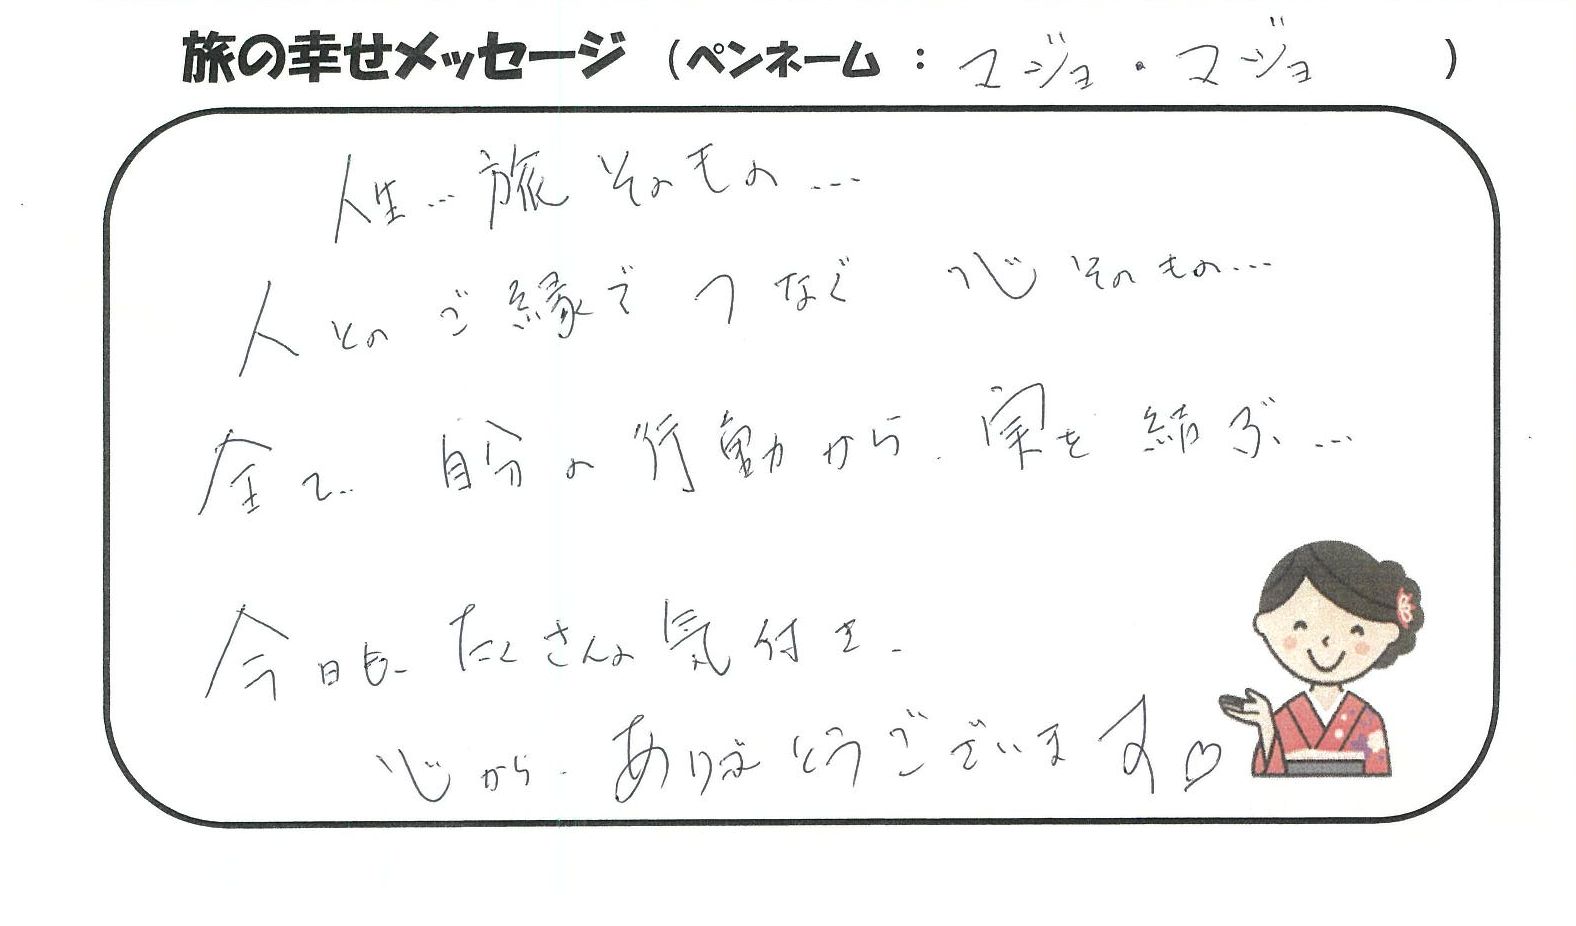 旅の幸せメッセージ (ペンネーム : マジョ・マジョ )
人生… 旅 そのもの…
人とのご縁で つなぐ 心そのもの…
全て… 自分の行動から、実を結ぶ…
今日も、たくさんの気付き、
心から、ありがとうございます♡